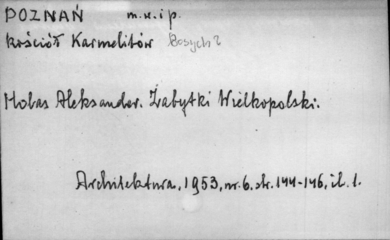 POZNAŃ m.w.i p.
Kościół Karmelitów Bosych?
Holas Aleksander. Zabytki Wielkopolski.
Architektura, 1953, nr. 6, str. 144-146, il. 1.